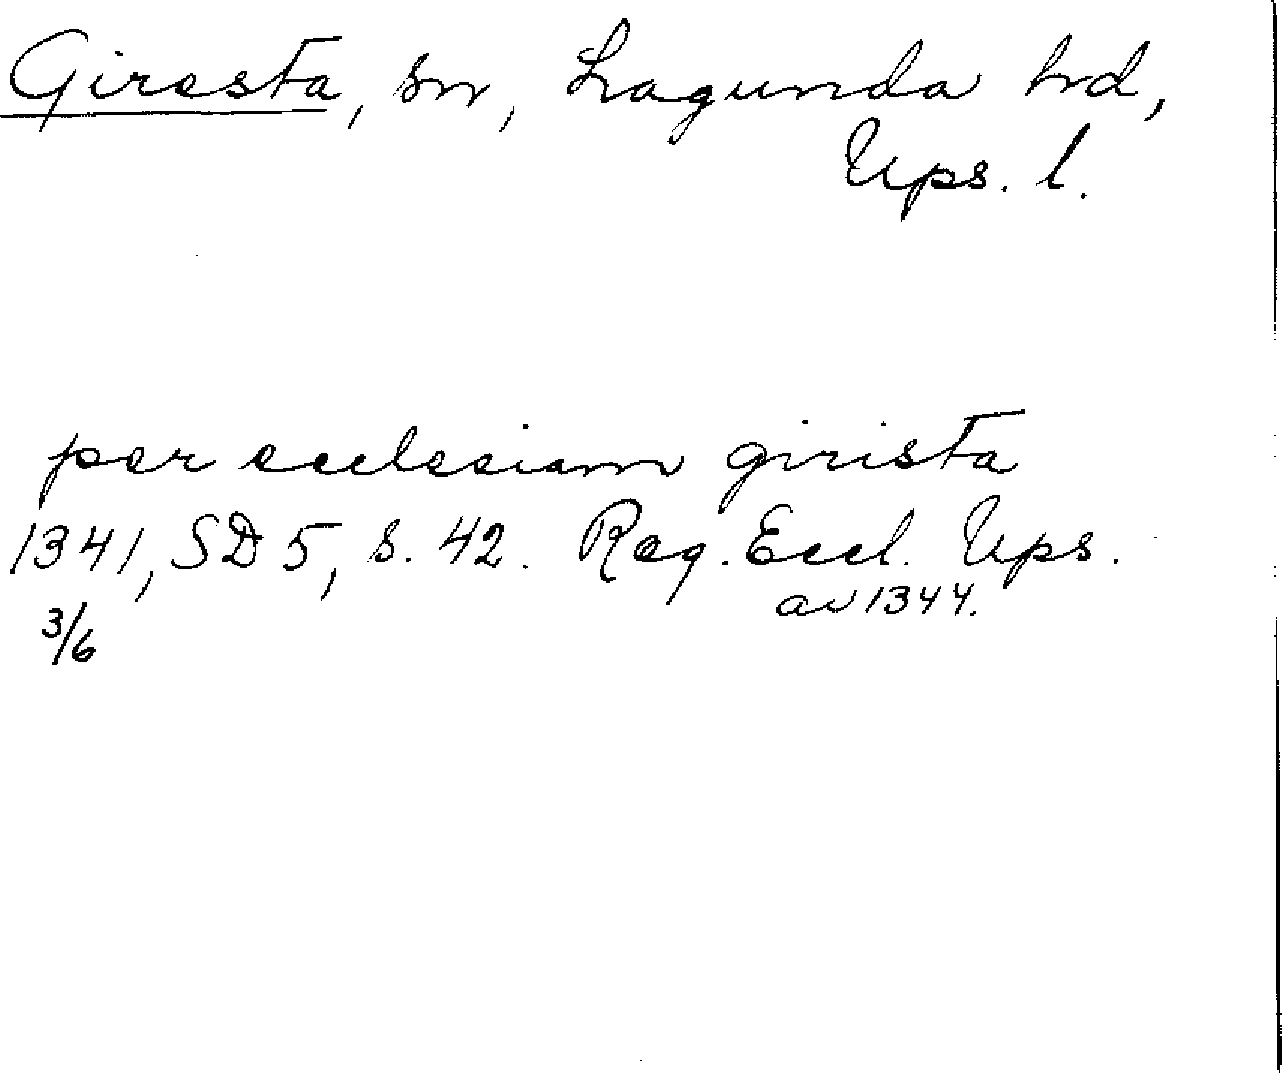 Giresta, sn, Lagunda hd,
Ups. l.
per ecclesiam girista
1341, SD 5, s. 42. Reg. Eccl. Ups.
av 1344.
3/6